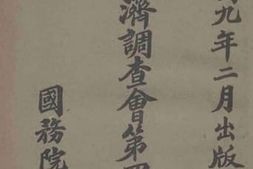 九年二月出版
濟調查會第
國務院